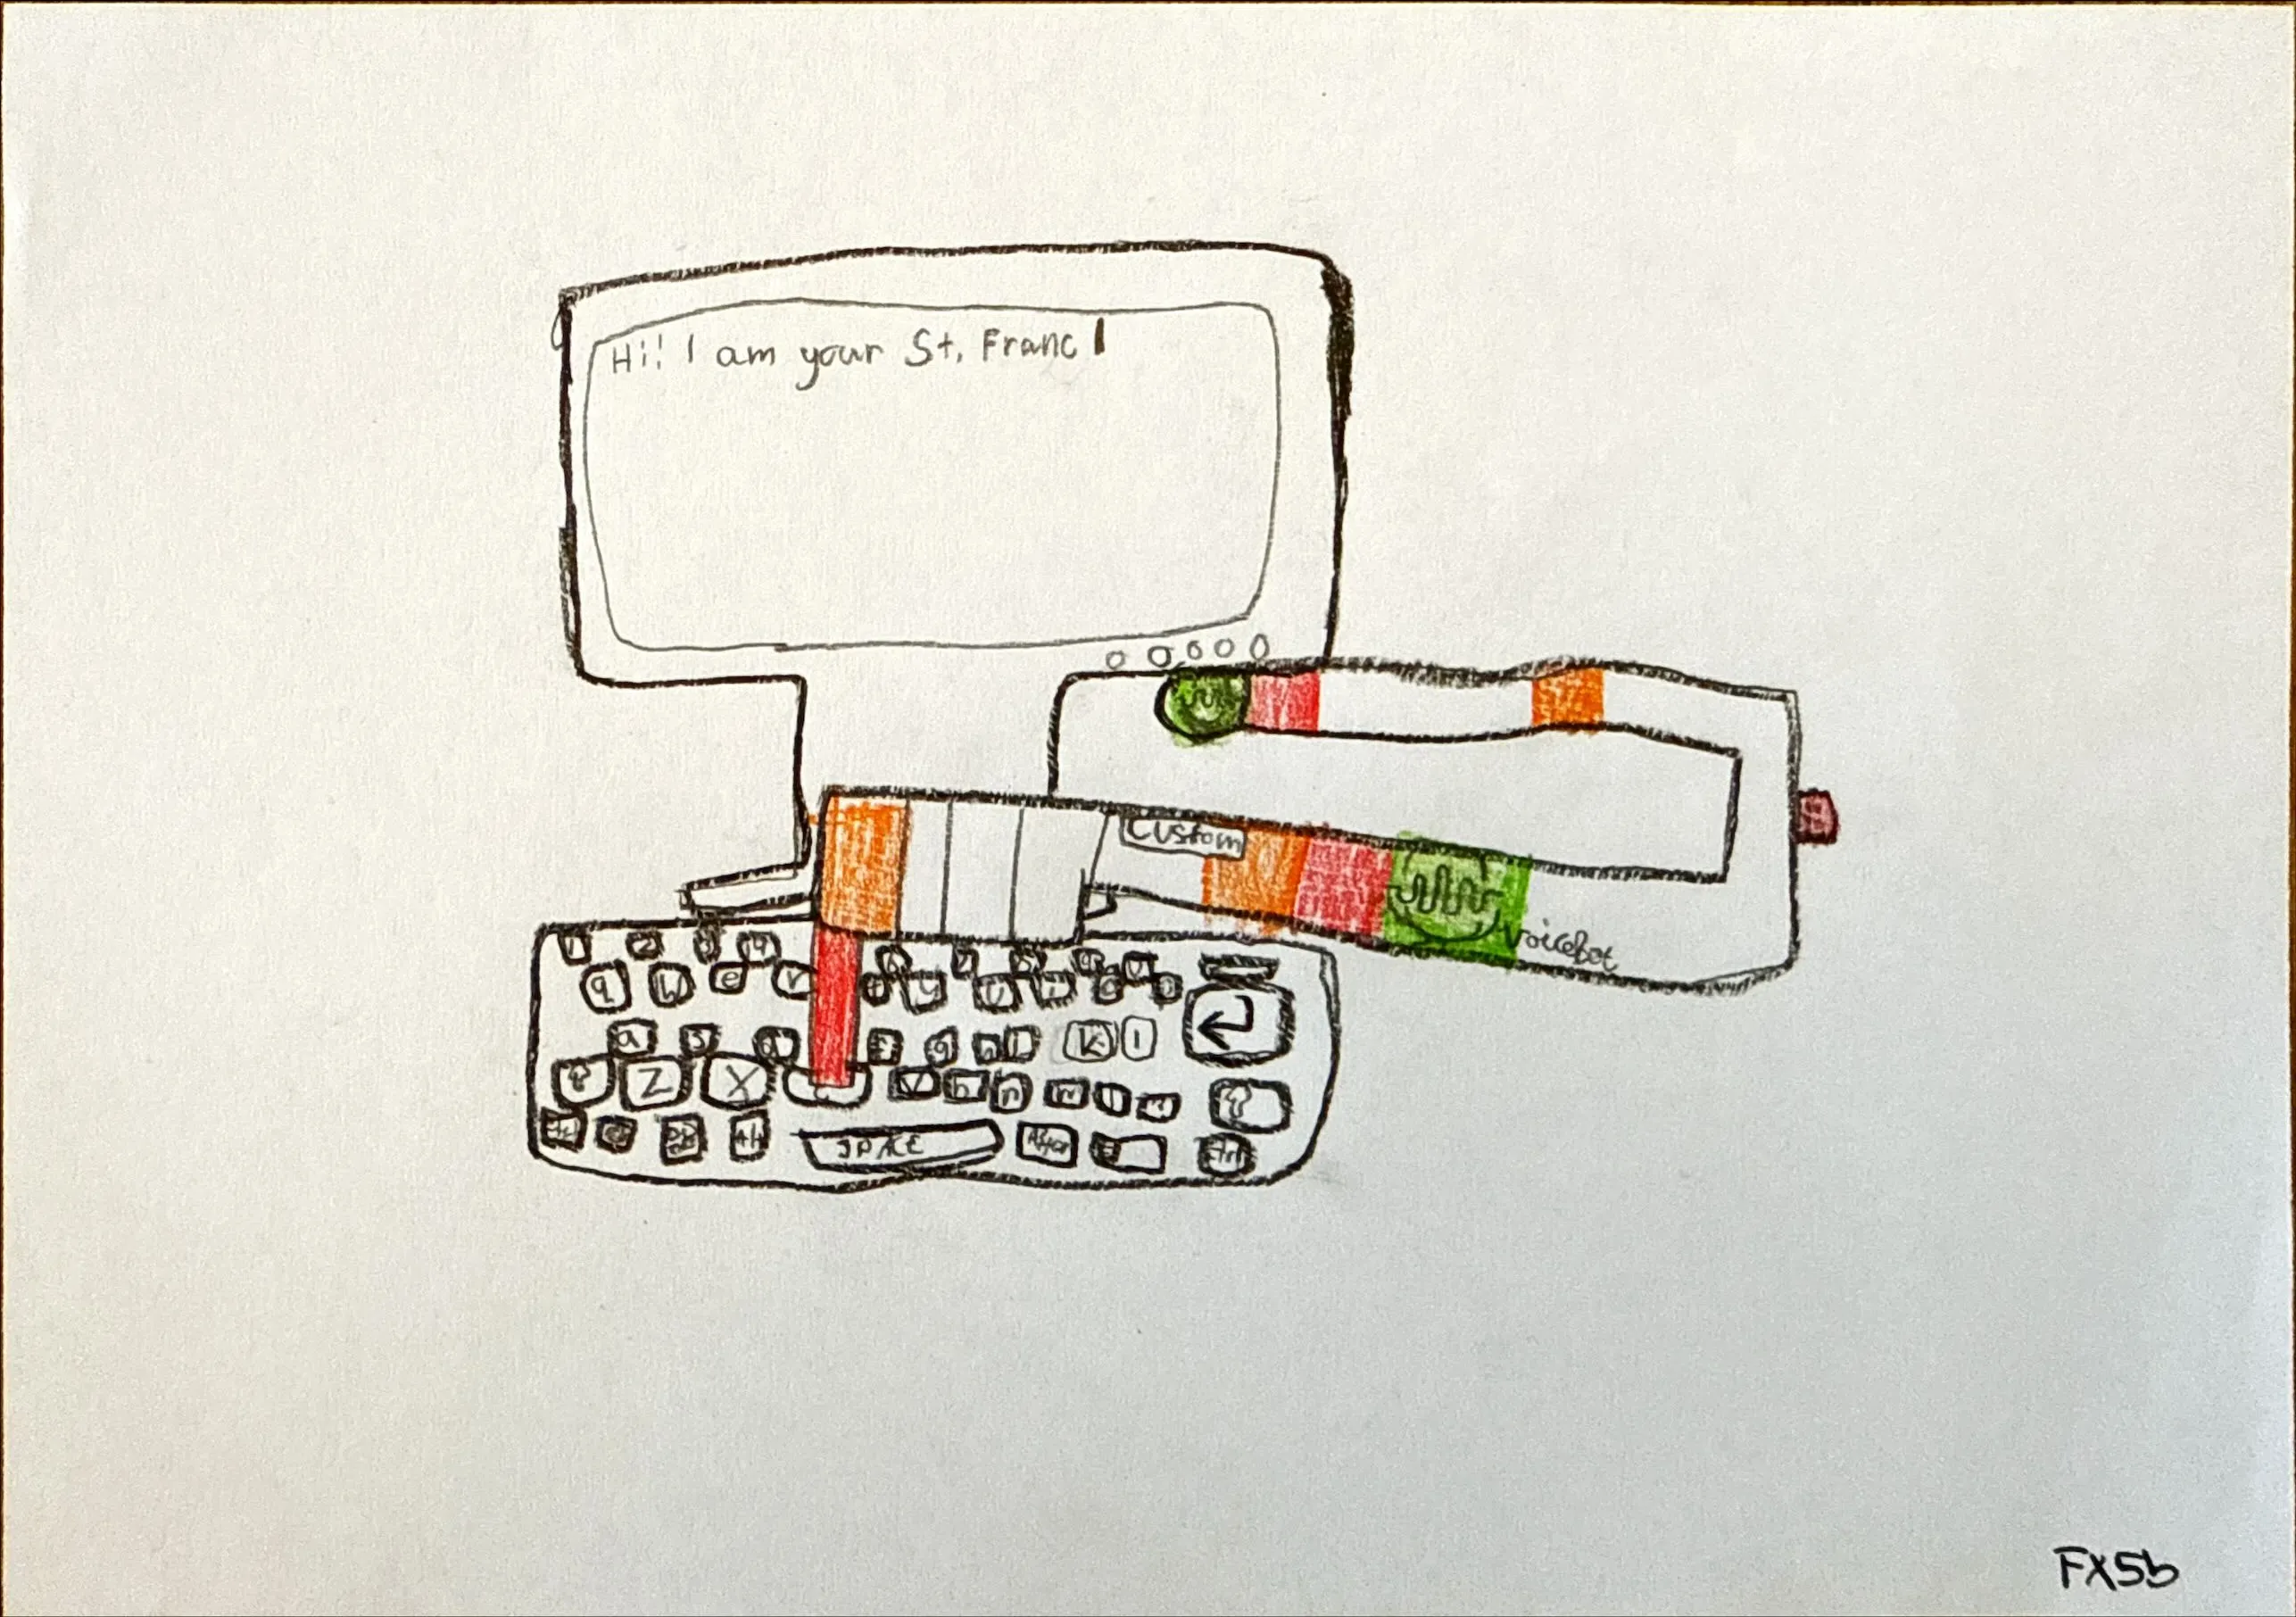 Hi! I am your St. Franc
Custom
Voicebot
1 2 3 4
q w e r y u i o p
a s d f g h k l
z x c v b n m
SPACE
FX5b